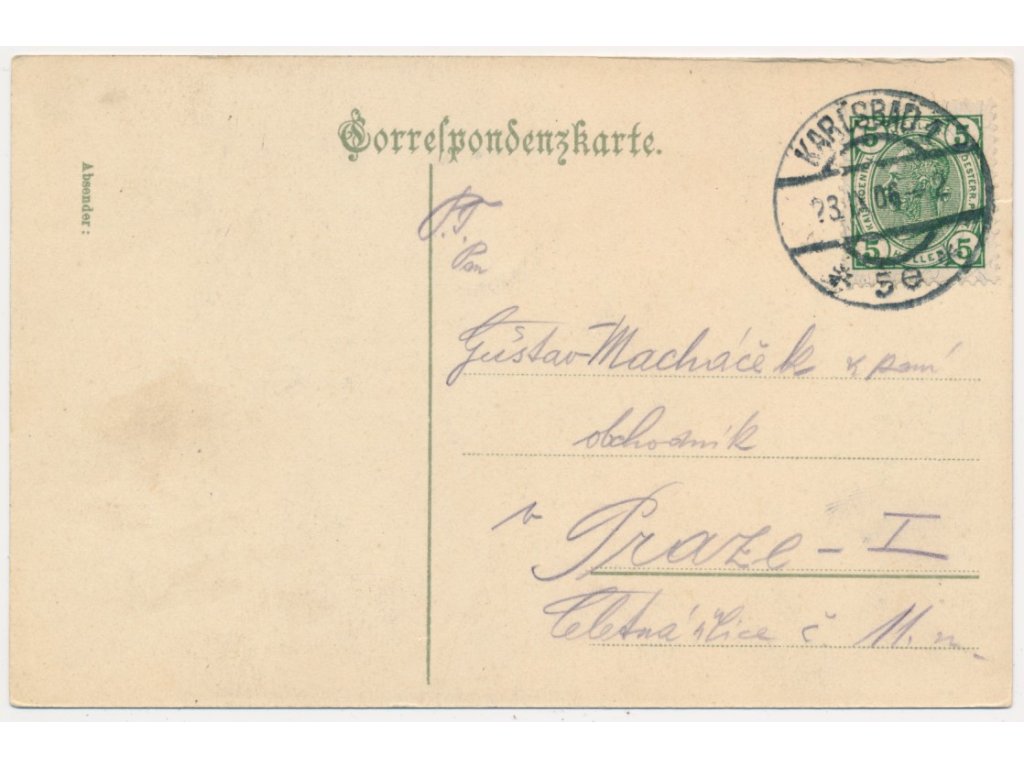 Correspondenzkarte.
Absender:
KARLSBAD 1
23. 06
* 5e
5 5
OESTERR. P
5 HELLER 5
P. T.
Pan
Gustav Macháček
obchodník
v Praze - I
Celetná ulice č 11. n.